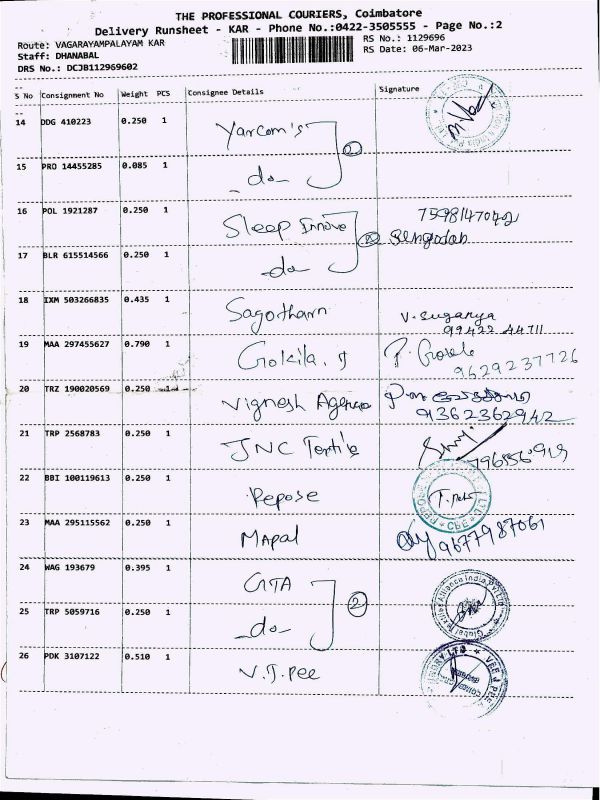 THE PROFESSIONAL COURIERS, Coimbatore
Delivery Runsheet - KAR - Phone No.:0422-3505555 - Page No.:2
Route: VAGARAYAMPALAYAM KAR
RS No.: 1129696
Staff: DHANABAL
RS Date: 06-Mar-2023
DRS No.: DCJB112969602
S No Consignment No Weight PCS Consignee Details Signature
14 DDG 410223 0.250 1 Yarcom's 2
15 PRO 14455285 0.085 1 - do -
16 POL 1921287 0.250 1 Sleep Innova 2 7598147042
17 BLR 615514566 0.250 1 do Sengodan
18 IXM 503266835 0.435 1 Sagotharn V. Suganya
99422 44711
19 MAA 297455627 0.790 1 Gokila. J 9629237726
20 TRZ 190020569 0.250 1 Vignesh Agency 9362362942
21 TRP 2568783 0.250 1 JNC
22 BBI 100119613 0.250 1 Repose CBE
23 MAA 295115562 0.250 1 Mapal 9677987061
24 WAG 193679 0.395 1 GTA 2 Alliance India Pvt Ltd
25 TRP 5059716 0.250 1 - do -
26 PDK 3107122 0.510 1 V.J.Pee